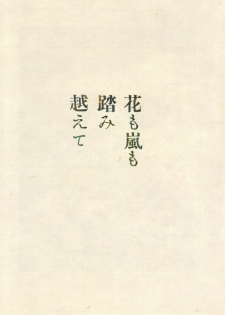 花も嵐も
踏み
越えて